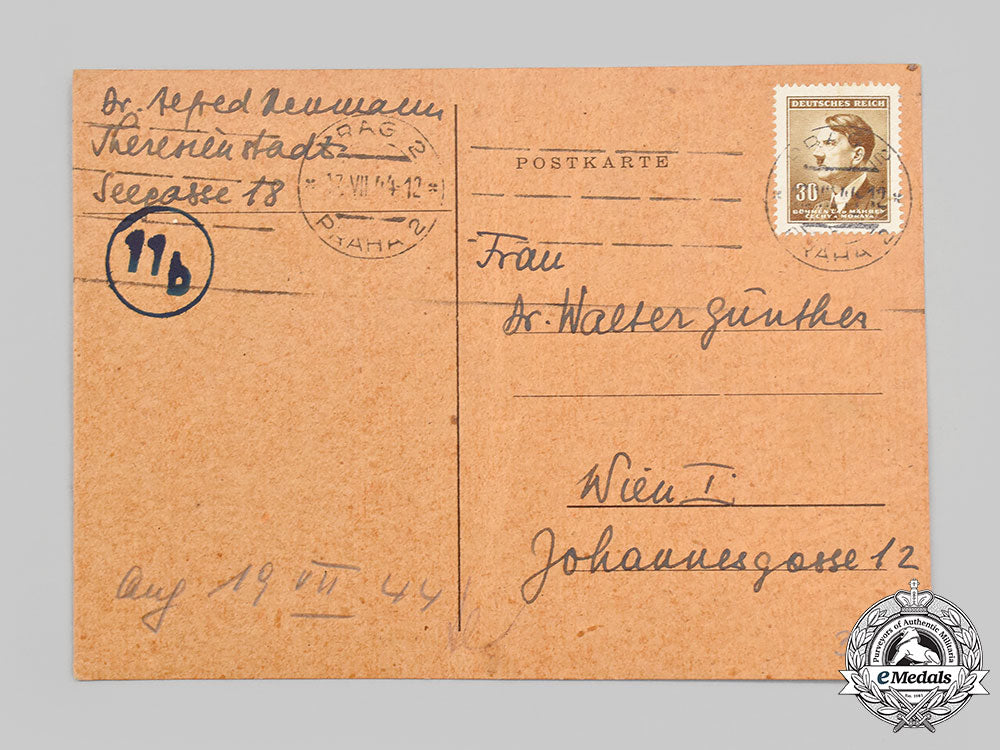 Dr. Alfred Neumann
Theresienstadt
Seegasse 18
11b
PRAG 2
* 17.VII.44-12 *
PRAHA 2
POSTKARTE
DEUTSCHES REICH
30
BÖHMEN UND MÄHREN
ČECHY A MORAVA
Frau
Dr. Walter Günther
Wien I.
Johannesgasse 12
Ang 19 VII 44
Purveyors of Authentic Militaria
eMedals